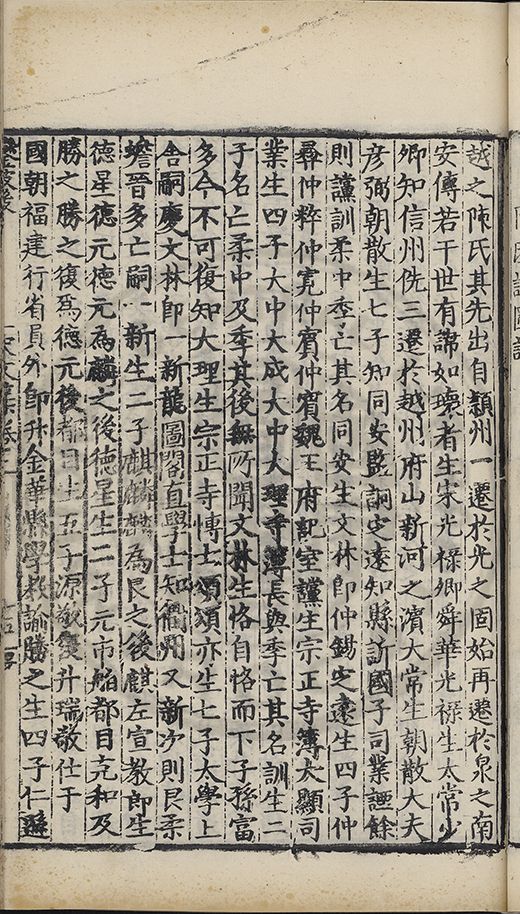 越之陳氏其先出自潁州一遷於光之固始再遷於泉之南
安傳若干世有諱如瓌者生宋光祿卿舜華光祿生太常少
卿知信州侁三遷於越州府山新河之濱大常生朝散大夫
彥弼朝散生七子知同安監詗定遠知縣訢國子司業諲餘
則讜訓柔中季亡其名同安生文林郎仲錫定遠生四子仲
尋仲粹仲寛仲賓仲賓魏王府記室讜生宗正寺簿大顯司
業生四子大中大成大中大理寺簿長與季亡其名訓生二
子名亡柔中及季其後無所聞文林生恪自恪而下子孫富
多今不可復知大理生宗正寺博士頌頌亦生七子太學上
舍嗣慶文林郎一新龍圖閣直學士知衢州又新沙則艮柔
蟾晉多亡嗣一新生二子麒麟麟為艮之後麒左宣教郎生
德星德元德元為麟之後德星生二子元市舶都目克和及
勝之勝之復爲德元後都目生五子源敬復升瑞敬仕于
國朝福建行省員外郎升金華縣學教諭勝之生四子仁